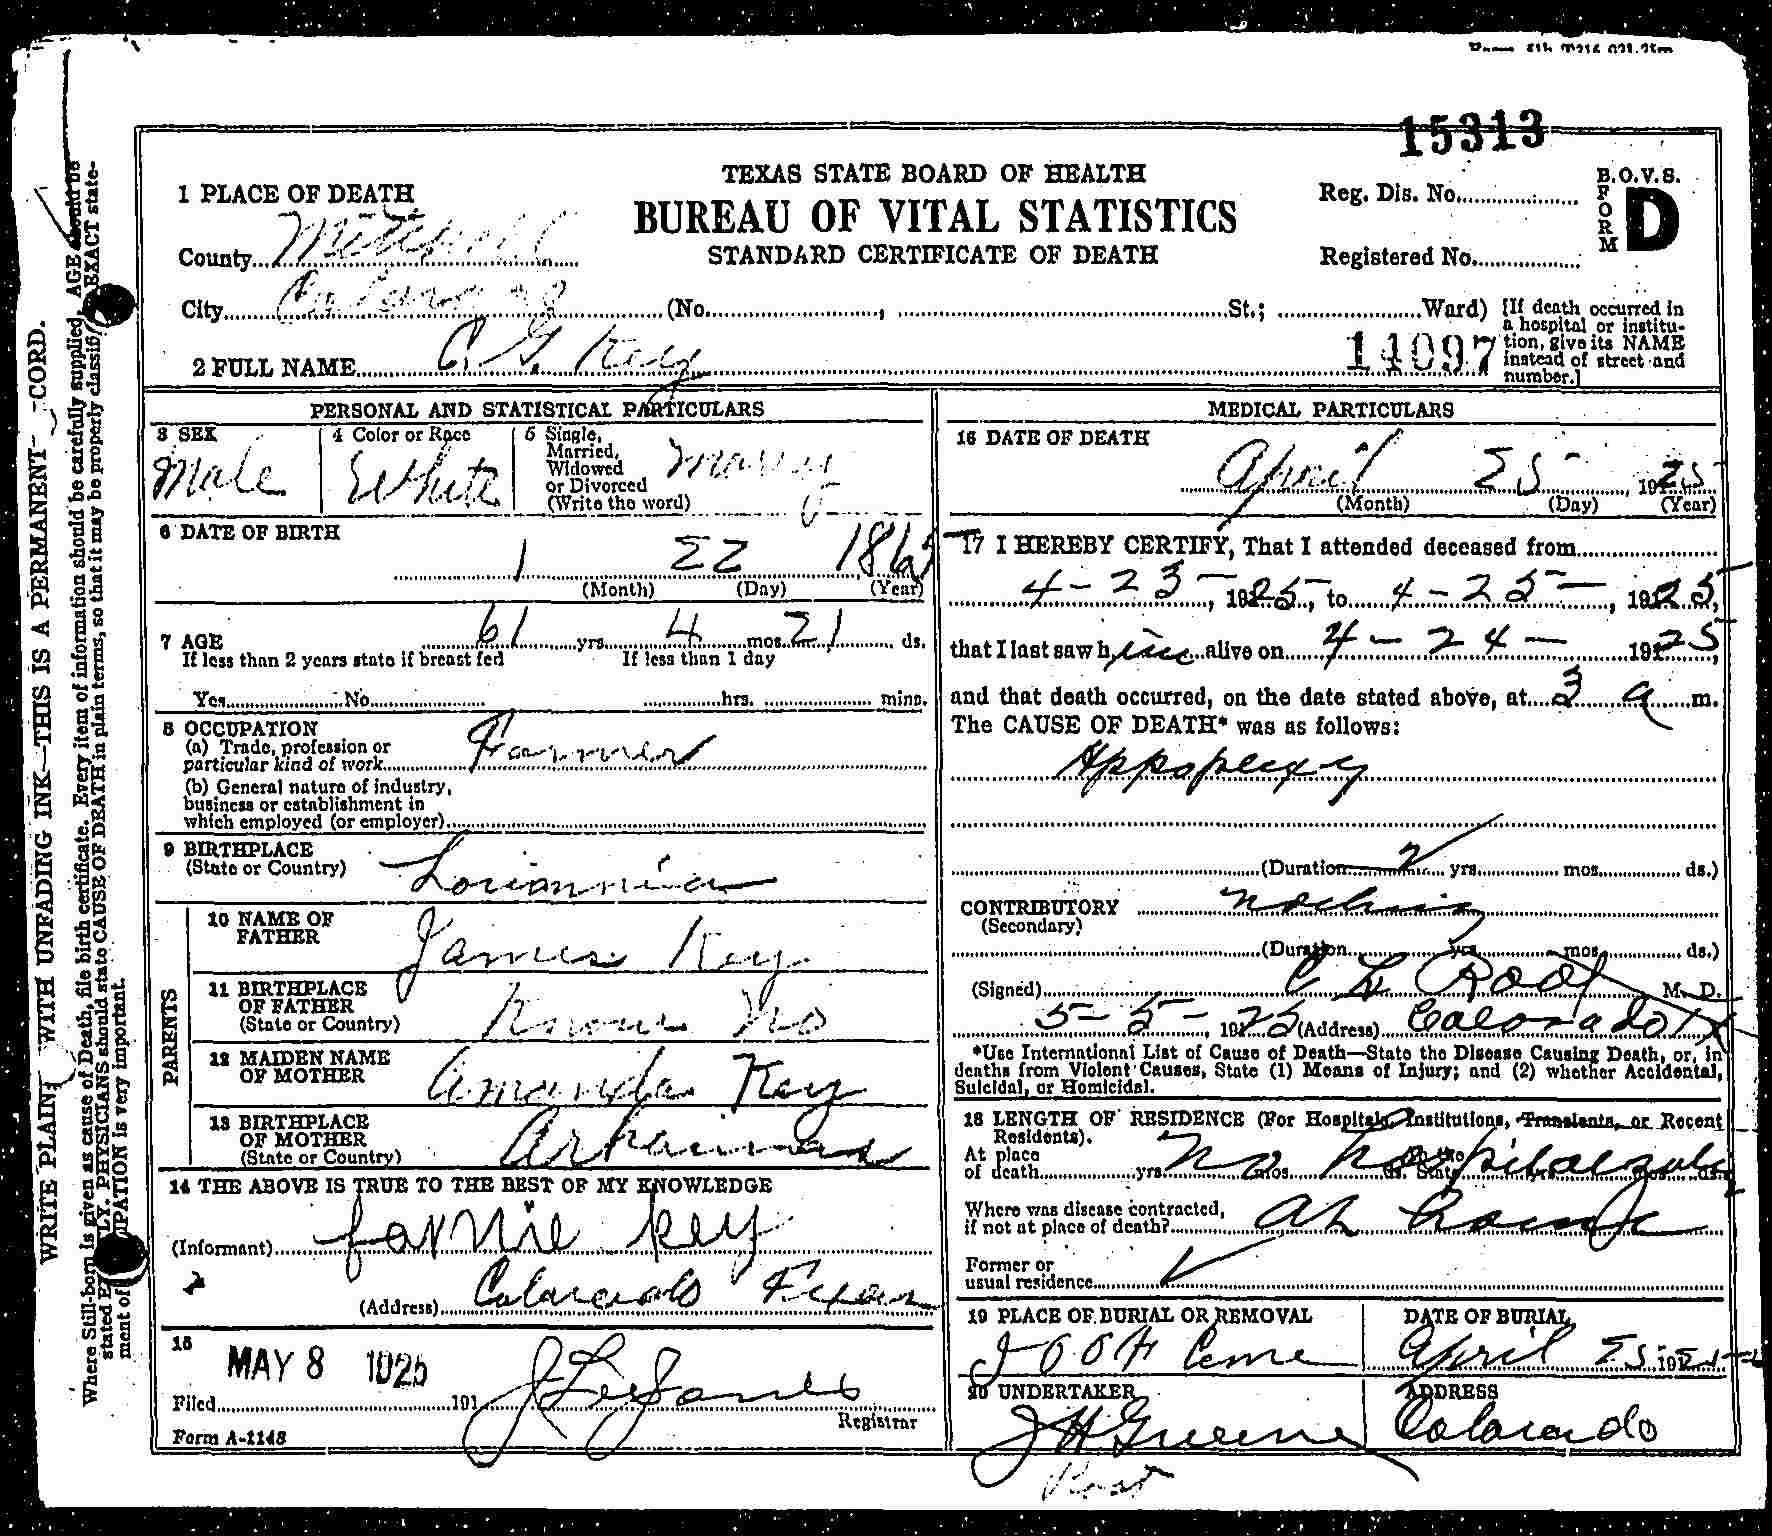 15313
TEXAS STATE BOARD OF HEALTH
BUREAU OF VITAL STATISTICS
STANDARD CERTIFICATE OF DEATH
Reg. Dis. No.
Registered No.
B.O.V.S.
FORM D
1 PLACE OF DEATH
County Mitchell
City Colorado (No. , St.; Ward)
[If death occurred in a hospital or institution, give its NAME instead of street and number.]
14097
2 FULL NAME C. G. Key
WRITE PLAINLY WITH UNFADING INK—THIS IS A PERMANENT CORD.
Where Still-born is given as cause of Death, file birth certificate. Every item of information should be carefully supplied. AGE should be
stated E LY. PHYSICIANS should state CAUSE OF DEATH in plain terms, so that it may be properly classif EXACT state-
ment of UPATION is very important.
PERSONAL AND STATISTICAL PARTICULARS
3 SEX
Male
4 Color or Race
White
5 Single, Married, Widowed or Divorced (Write the word)
6 DATE OF BIRTH
1 22
(Month) (Day) (Year)
7 AGE 61 yrs. 4 mos. 21 ds.
If less than 2 years state if breast fed If less than 1 day
Yes No hrs. mins.
8 OCCUPATION
(a) Trade, profession or
particular kind of work Farmer
(b) General nature of industry,
business or establishment in
which employed (or employer)
9 BIRTHPLACE
(State or Country)
PARENTS
10 NAME OF FATHER James Key
11 BIRTHPLACE OF FATHER (State or Country) Know No
12 MAIDEN NAME OF MOTHER Amanda Key
13 BIRTHPLACE OF MOTHER (State or Country) Arkansas
14 THE ABOVE IS TRUE TO THE BEST OF MY KNOWLEDGE
(Informant) fannie key
(Address) Colorado Texas
15
MAY 8 1925
Filed 191
Registrar
Form A-1148
MEDICAL PARTICULARS
16 DATE OF DEATH
April 25 1925
(Month) (Day) (Year)
17 I HEREBY CERTIFY, That I attended deceased from
4-23-, 1925, to 4-25-, 1925,
that I last saw him alive on 4-24-1925,
and that death occurred, on the date stated above, at 3 a m.
The CAUSE OF DEATH* was as follows:
Appoplexy
(Duration yrs. mos. ds.)
CONTRIBUTORY nothing
(Secondary)
(Duration yrs. mos. ds.)
(Signed) C L Root M. D.
5-5-, 1925 (Address) Colorado Tx
*Use International List of Cause of Death—State the Disease Causing Death, or, in
deaths from Violent Causes, State (1) Means of Injury; and (2) whether Accidental,
Suicidal, or Homicidal.
18 LENGTH OF RESIDENCE (For Hospitals, Institutions, Transients, or Recent
Residents).
At place In the
of death yrs. No mos. ds. State yrs. mos. ds.
Where was disease contracted,
if not at place of death? At home
Former or
usual residence
19 PLACE OF BURIAL OR REMOVAL
I O O F Ceme
DATE OF BURIAL
April 25 1925
20 UNDERTAKER
J H Greene
ADDRESS
Colorado